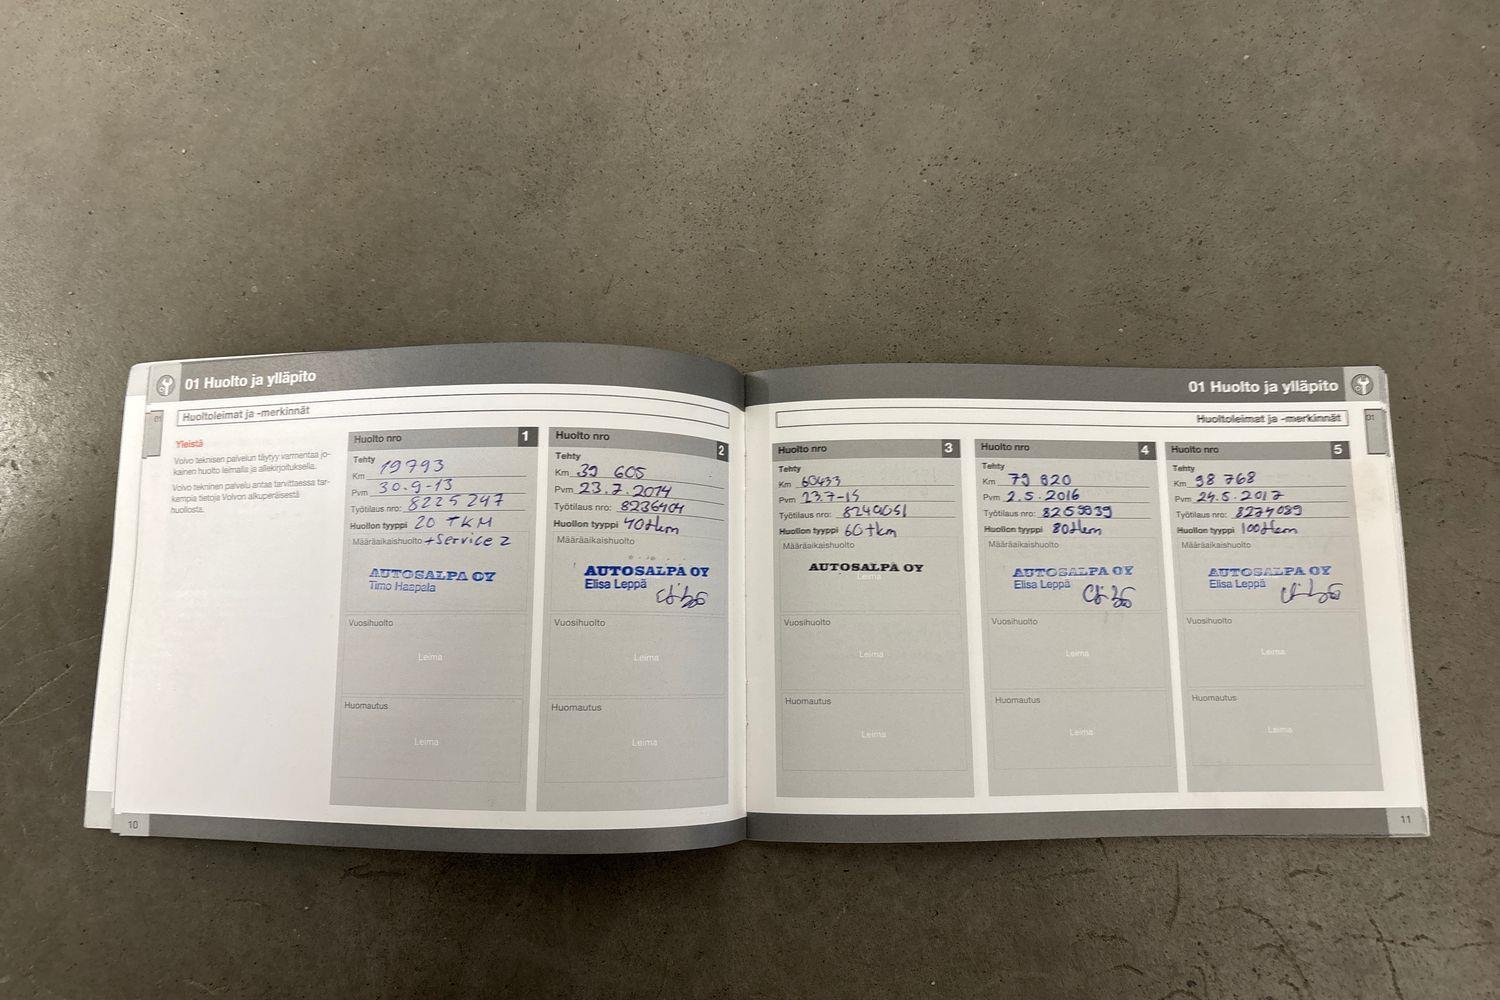 01 Huolto ja ylläpito
01
Huoltoleimat ja -merkinnät
Yleistä
Volvo teknisen palvelun täytyy varmentaa jo-
kainen huolto leimalla ja allekirjoituksella.
Volvo tekninen palvelu antaa tarvittaessa tar-
kempia tietoja Volvon alkuperäisestä
huollosta.
Huolto nro 1
Tehty
Km 19793
Pvm 30.9-13
Työtilaus nro: 8225247
Huollon tyyppi 20 TKM
Määräaikaishuolto + Service 2
AUTOSALPA OY
Timo Haapala
Vuosihuolto
Leima
Huomautus
Leima
Huolto nro 2
Tehty
Km 39 605
Pvm 23.7.2014
Työtilaus nro: 8236404
Huollon tyyppi 40tkm
Määräaikaishuolto
AUTOSALPA OY
Elisa Leppä
Vuosihuolto
Leima
Huomautus
Leima
10
01 Huolto ja ylläpito
Huoltoleimat ja -merkinnät
01
Huolto nro 3
Tehty
Km 60433
Pvm 23.7-15
Työtilaus nro: 8240051
Huollon tyyppi 60tkm
Määräaikaishuolto
AUTOSALPA OY
Leima
Vuosihuolto
Leima
Huomautus
Leima
Huolto nro 4
Tehty
Km 79 820
Pvm 2.5.2016
Työtilaus nro: 8259039
Huollon tyyppi 80tkm
Määräaikaishuolto
AUTOSALPA OY
Elisa Leppä
Vuosihuolto
Leima
Huomautus
Leima
Huolto nro 5
Tehty
Km 98 768
Pvm 24.5.2017
Työtilaus nro: 8274089
Huollon tyyppi 100tkm
Määräaikaishuolto
AUTOSALPA OY
Elisa Leppä
Vuosihuolto
Leima
Huomautus
Leima
11